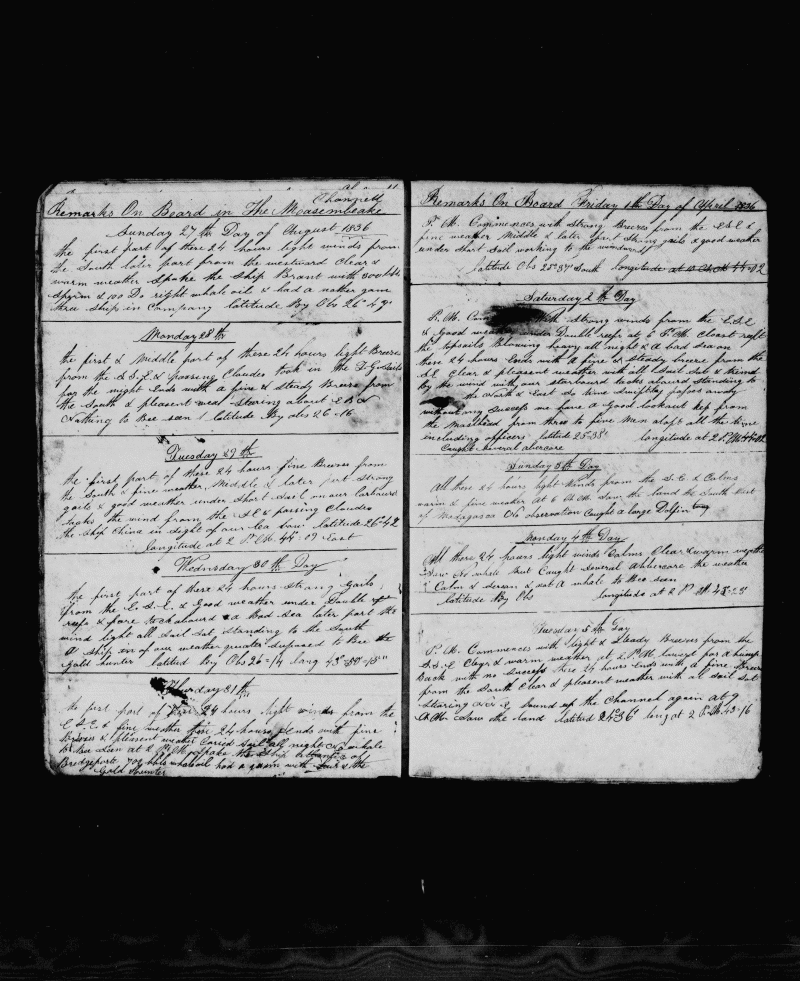 Channell
Remarks On Board in The Measembeake
Sunday 27th Day of August 1836
the first part of these 24 hours light winds from
the South later part from the westward Clear &
warm weather Spoke the Ship Brant with 500 bbls
Sperm & 100 Do right whale oil & had a nother gam
three Ship in Company latitude By Obs 26-49
Monday 28th
the first & Middle part of these 24 hours light Breeses
from the S.S.E & passing Cloudes took in the
for the night Ends with a fine & Steady Breese from
the South & pleasent Stearing about
Nothing to Bee seen latitude By obs 26-16
Tuesday 29th
the first part of these 24 hours fine Breeses from
the South & fine weather Middle & later part Strong
gails & good weather under Short Sail on our larbourd
tacks the wind from the S.E & passing Cloudes
the Ship Chine in Sight of our lea bow latitude 26-42
longitude at 2 P.M. 44-07 East
Wednsday 30th Day
the first part of these 24 hours Strong Gails
from the E.S.E & Good weather under Double
reefs & a Bad Sea later part the
wind light all Sail Set Standing to the South
A Ship in of our weather quater suposed to Bee the
Gold hunter latited By Obs 26-14 long 43-59-15"
Thursday 31th
the first part of these 24 hours light winds from the
E.S.E & fine weather these 24 hours Ends with fine
Breeses & pleesent weather Carried Sail all night No whale
to Bee Seen at 2 P.M. Spoke the Ship of
Bridgeport 700 bbls whale oil had a gamm with &the
Gold Hounter
Remarks On Board Friday 1th Day of April 1836
P.M. Commences with Strong Breeses from the S.S.E &
fine weather Middle & later part Strong gails & good weather
under Short Sail working to the windward
latitude Obs 25-37 South longitude at 10
Saturday 2th Day
P.M. with strong winds from the E.S.E
& Good weather under Double reefs at 2 P.M. Closet reeft
the topsails Blowing heavy all night & A bad Sea on
these 24 hours Ends with a fine or Steady breese from the
S.E Clear & pleesent weather with all Sail Set & the wind
by the wind with our starbourd tacks abourd Standing to
the North & East So time Swiftly passes away
without any Success we have a Good lookout kep from
the Masthead from three to five Men aloft all the time
including officers latitude 25-38 longitude at 2 P.M
Caught Several abercore
Sunday 3th Day
All these 24 hours light winds from the S.E & Calms
warm & fine weather at 6 A.M. Saw the land the South West
of Madagascar No observation Caught a large Dolfin
Monday 4th Day
All these 24 hours light winds Calms Clear & warm weather
Saw No whale But Caught Several Albercore the weather
Calm & Seren & not A whale to Bee seen
latitude By Obs longitude at 2 P.M. 43-29
Tuesday 5th Day
P.M. Commences with light & Steady Breeses from the
S.S.E Clear & warm weather at 2 P.M. lowerd for a hump
Back with no Success these 24 hours Ends with a fine Breese
from the South Clear & pleesent weather with all Sail Set
Stearing bound up the Channel again at 9
A.M. Saw the land latited 24-36 long at 2 P.M. 43-16